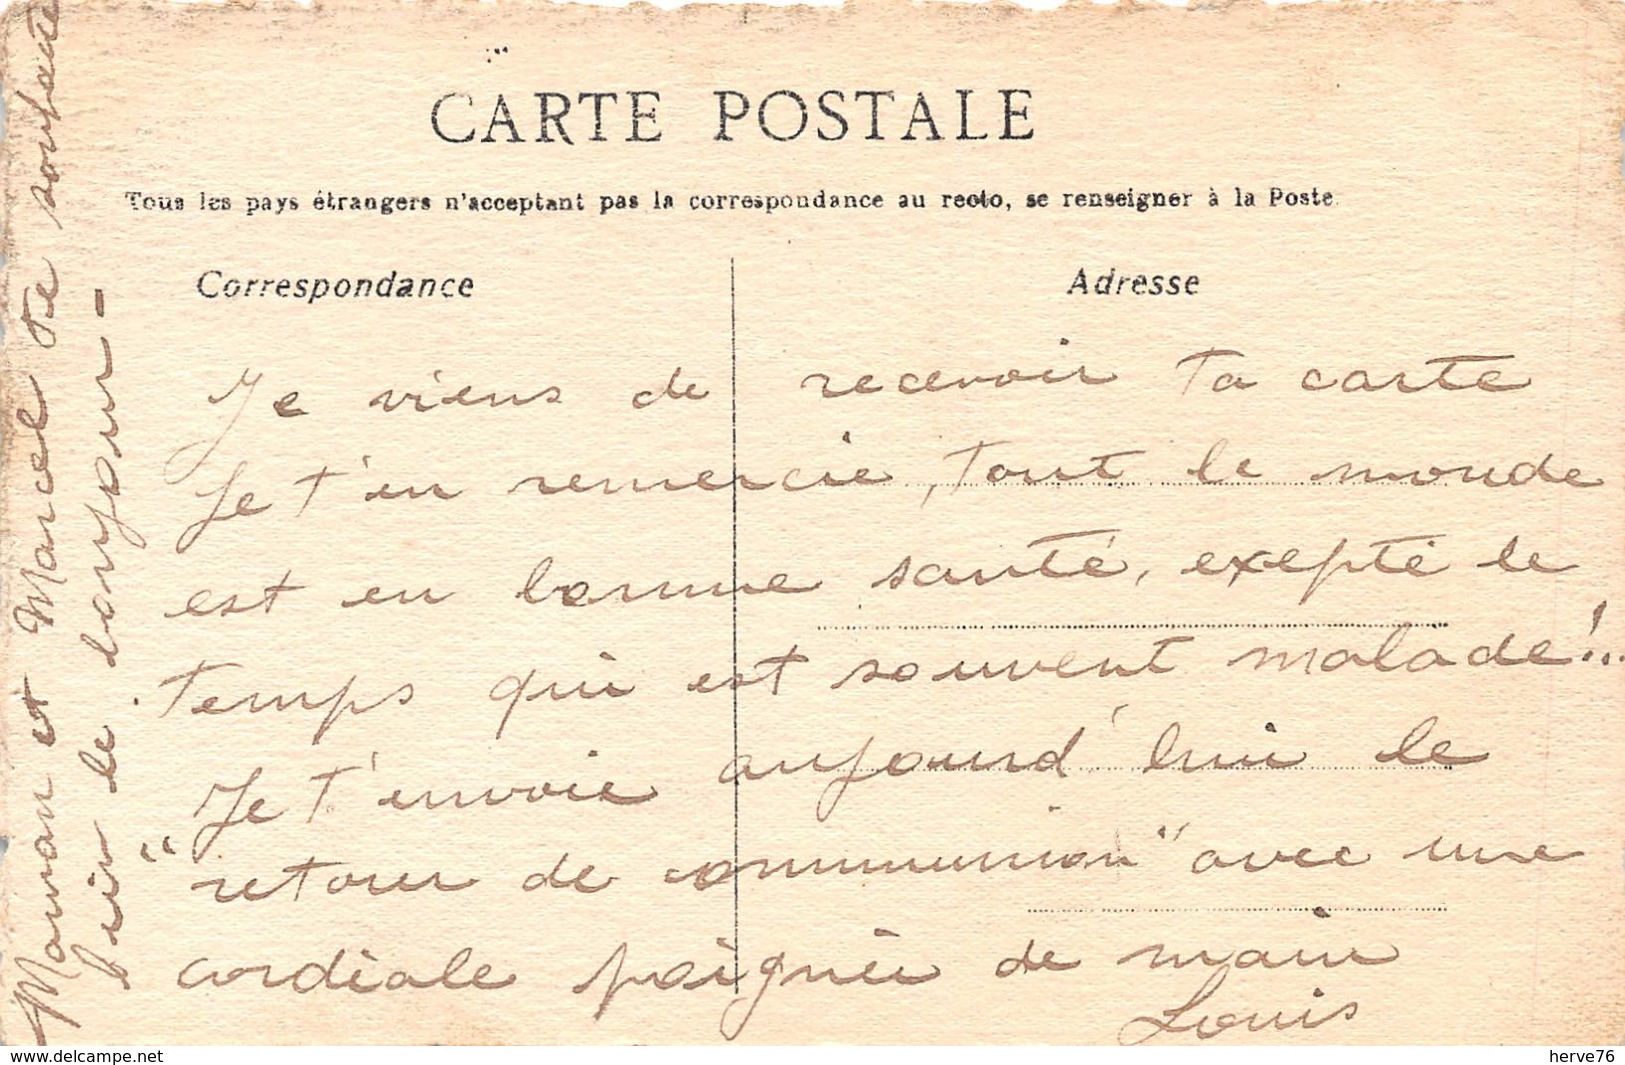 CARTE POSTALE
Tous les pays étrangers n'acceptant pas la correspondance au recto, se renseigner à la Poste
Correspondance
Adresse
Je viens de recevoir ta carte
Je t'en remercie, tout le monde
est en bonne santé, exepté le
temps qui est souvent malade!..
Je t'envoie aujourd'hui le
"retour de communion" avec une
cordiale poignée de main
Louis
Maman et Marcel te souhaite
bien le bonjour -
delcampe.net
herve76